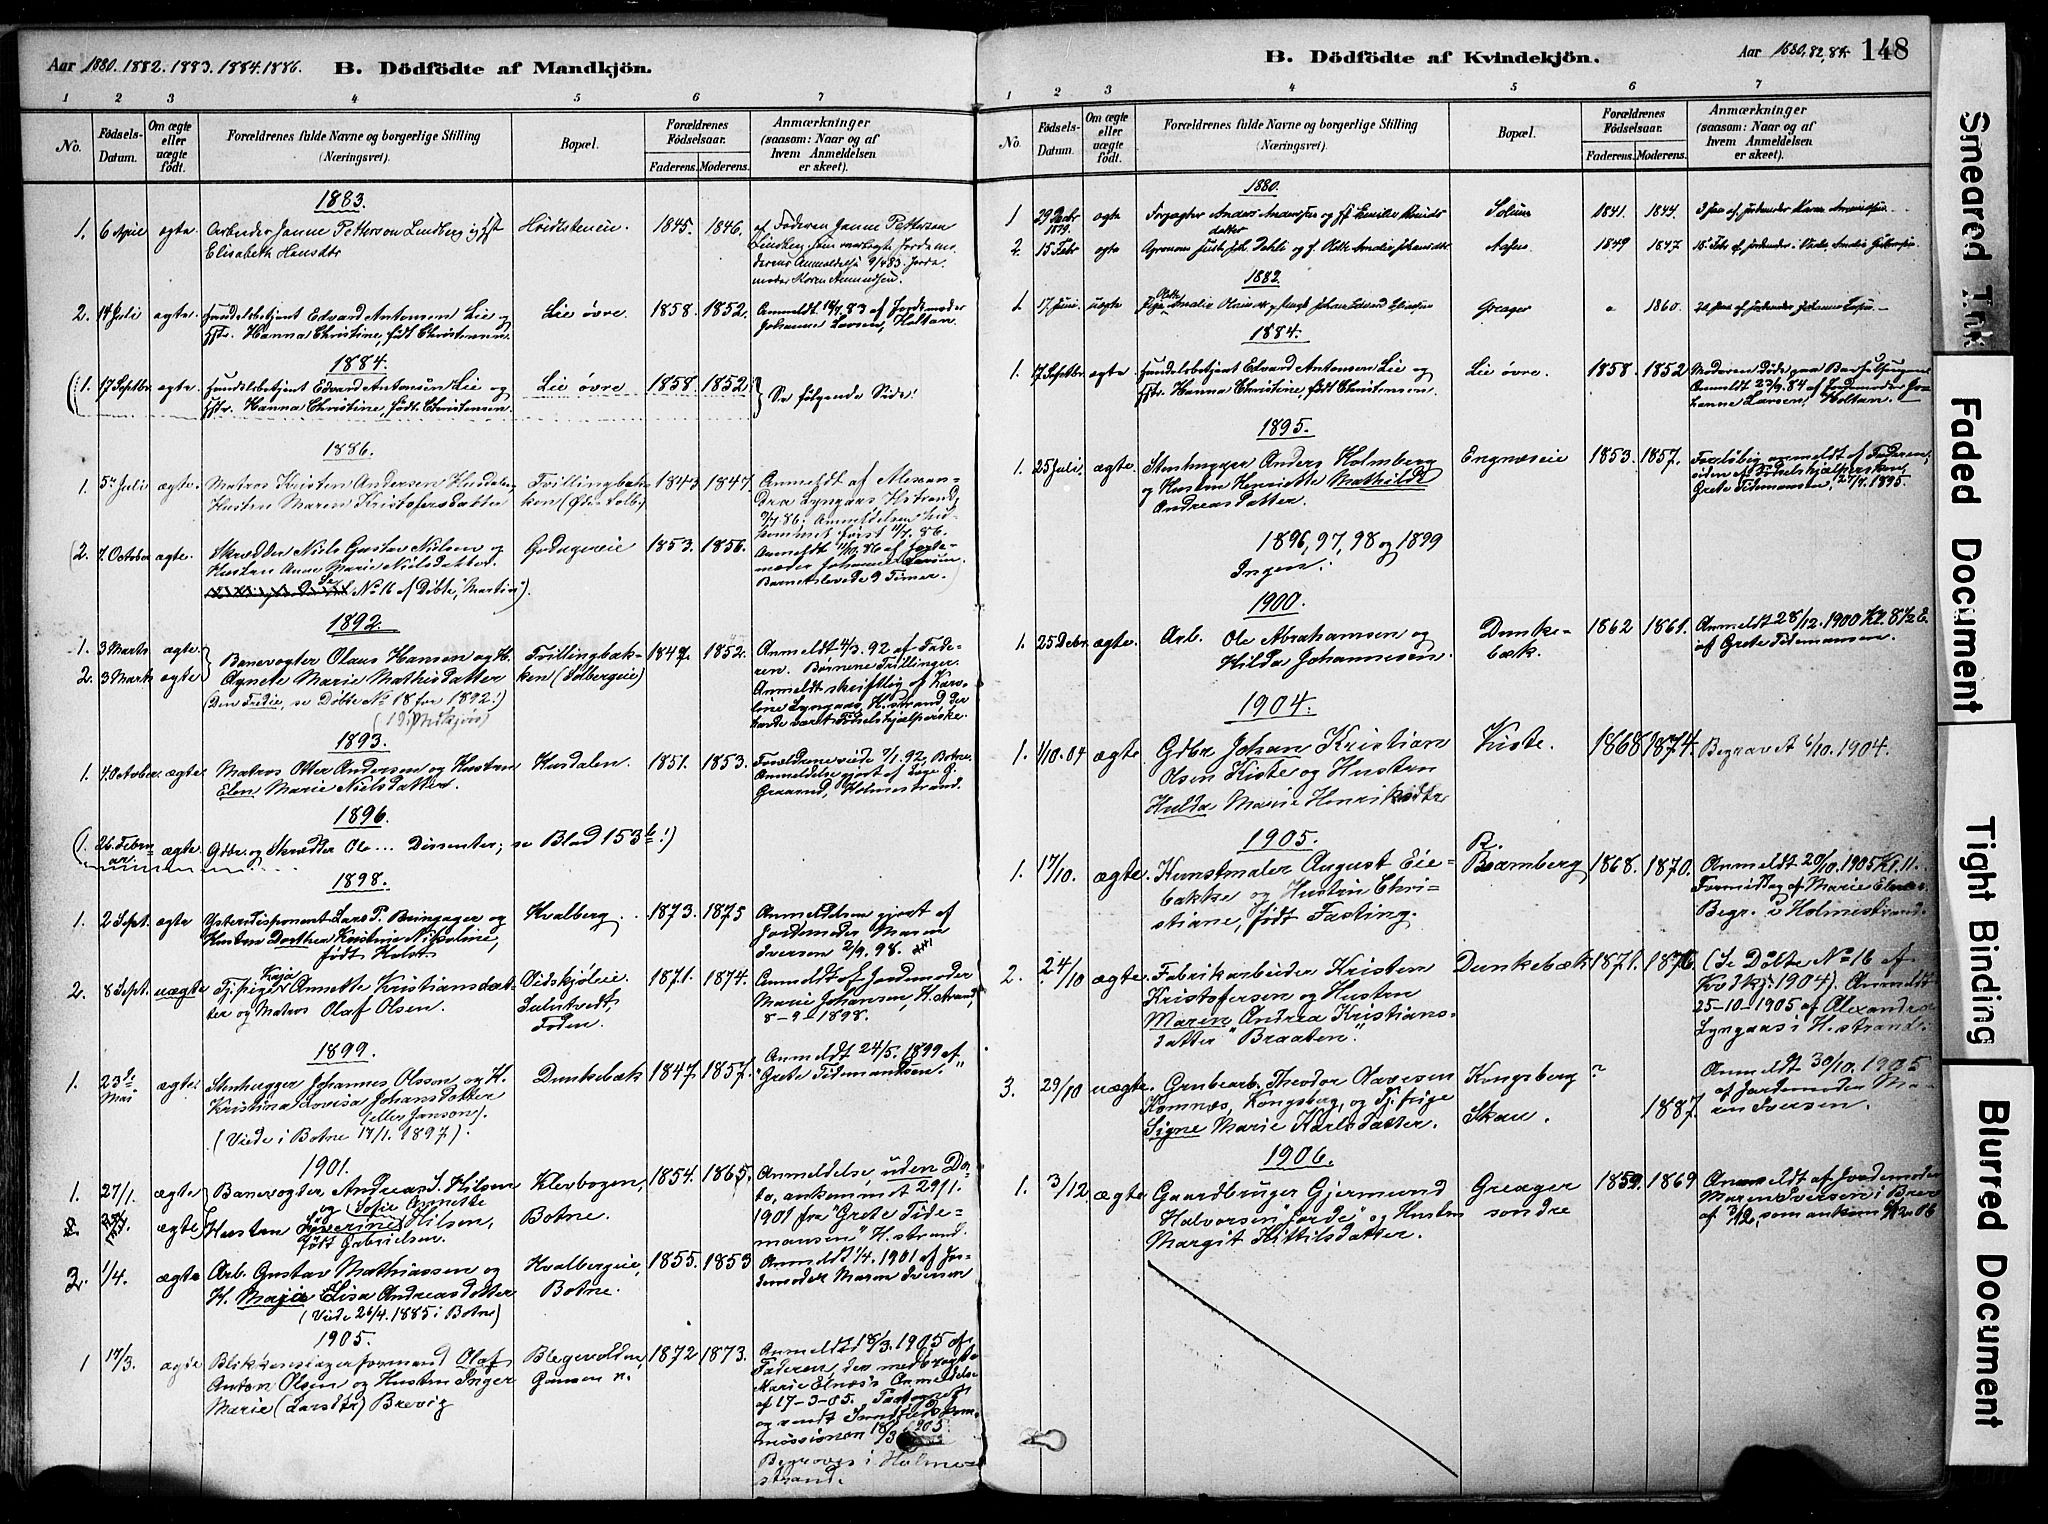 Aar 1880. 1882. 1883. 1884. 1886. B. Dödfödte af Mandkjön.
1 2 3 4 5 6 7
No. Födsels-Datum. Om ægte eller uægte födt. Forældrenes fulde Navne og borgerlige Stilling (Næringsvei). Bopæl. Forældrenes Födselsaar. Faderens. Moderens. Anmærkninger (saasom: Naar og af hvem Anmeldelsen er skeet).
1883.
1. 6 April ægte Arbeider Janne Petterson Lindberg og Hst Høidstenien. 1845. 1846. af Faderen Janne Petterson
Elisabeth Hansdtr
moder Karen Amundsen.
2. 14 Juli ægte. Handelsbetjent Edvard Antonsen Lie og Lie øvre. 1858. 1852. Anmeldt 16/7 83 af Jordemoder
Hstr. Hanna Christine, født Christensen. Johanne Larsen, Holtan.
1884.
(1. 17 Septbr. ægte. Handelsbetjent Edvard Antonsen Lie og Lie øvre 1858. 1852. Se følgende Side!
Hstr. Hanna Christine, født Christensen.
1886.
1. 5te Juli ægte. Matros Kristen Andersen Husdalen Trillingbak- 1843 1847. Anmeldt af Alexan-
Hustru Maren Kristofersdatter ken (Øde Solb.) dra Lyngaas, Hstrand,
9/7 86; Anmeldelsen ind-
kommet først 11/7. 86.
(2. 7 October ægte. Skrædder Niels Gustav Nilsen og Godageveie 1853. 1856. Anmeldt 11/10. 86 af Jorde-
Hustru Anne Marie Nielsdatter. moder Johanne Larsen.
Se No 16 af Døbte, Martin). Barnet levede 9 Timer.)
1892.
1. 3 Marts ægte. Banevogter Olaus Hansen og H. Trillingbak- 1847. 1852. Anmeldt 4/3. 92 af Fade-
2. 3 Marts ægte Agnete Marie Mathisdatter ken (Solbergeie) ren. Børnene Trillinger.
(Den Tredie, se Døbte No 18 for 1892!) Anmeldt skriftlig af Karo-
line Lyngaas, H.strand, der
havde været Fødselshjælperske.
1893.
1. 4 Octobr. ægte. Matros Otter Andersen og Hustru Husdalen. 1851. 1853. Forældrene viede 7/1. 92, Botne.
Elen Marie Nielsdatter. Anmeldelse gjort af Læge G.
Graarud, Holmestrand.
1896.
(1. 26. Februar ægte. Gdbr. og Skrædder Ole ... Dissenter; se Blad 153 b!)
1898.
1. 2 Sept. ægte Gster.disponent Lars P. Bringager og Hvalberg. 1873. 1875 Anmeldelsen gjort af
Hustru Dorthea Kristine Nikoline, Jordemoder Maren
født Holst. Iversen 2/9. 98.
2. 8 Sept. uægte Tj.pige Kaja Annette Kristiansdat- Vidskjøleie. 1871. 1874. Anmeldt af Jordemoder
ter og Matros Olaf Olsen. Marie Johansen, H.strand,
8-9-1898.
1899.
1. 23de Mai ægte. Stenhugger Johannes Olsson og H. Dunkebæk 1847. 1857. Anmeldt 24/5. 1899 af
Kristina Lovisa Johansdatter "Grete Tidemandsen."
(eller Janson).
(Viede i Botne 17/1. 1897).
1901.
1. 27/1. ægte Banevogter Andreas S. Hilsen Klevbogen, 1854. 1865. Anmeldelse, uden Da-
og Sofie Annette to, ankommet 29/1.
ægte Hustru Severine Hilsen, Botne. 1901 fra "Grete Tide-
født Gabrielsen. mansen" H.strand.
2. 1/4. ægte Arb. Gustav Mathiassen og Hvalbergeie, 1855. 1853 Anmeldt 1/4. 1901, af Jor-
H. Maja Elisa Andreasdatter Botne. demoder Maren Iversen
(Viede 26/4. 1885 i Botne)
1905.
1 17/3. ægte Blikkenslagerformand Olaf Blegevolden, 1872 1873. Anmeldt 18/3. 1905 af
Anton Olsen og Hustru Inger Gausen n. Faderen, der medbragte
Marie (Larsdtr) Brevig Marie Elnæs's Anmeldelse
af 17-3-05.
og sendt Sundhedskom-
missionen 18/3 1905.
Begraves i Holme-
strand.
B. Dödfödte af Kvindekjön. Aar 1880. 82, 84. 148
1 2 3 4 5 6 7
No. Födsels-Datum. Om ægte eller uægte födt. Forældrenes fulde Navne og borgerlige Stilling (Næringsvei). Bopæl. Forældrenes Födselsaar. Faderens. Moderens. Anmærkninger (saasom: Naar og af hvem Anmeldelsen er skeet).
1880.
1 29 Decbr 1879. ægte Forpagter Anders Andersen og Hst Emilie Knuds Solum 1841. 1844.
datter
2. 15 Febr ægte 1849 1847.
1882.
1. 17 Juni uægte Greager 1860.
1884.
1. 17 Septbr. ægte. Handelsbetjent Edvard Antonsen Lie og Lie øvre. 1858. 1852 Moderen døde paa Barselsengen.
Hstr. Hanna Christine, født Christensen. Anmeldt 27/9. 84 af Jordemoder Jo-
hanne Larsen, Holtan.
1895.
1. 25 Juli. ægte. Stenhugger Anders Holmberg Engnæseie 1853. 1857. Foreløbig anmeldt af Faderen,
og Hustru Henriette Mathilde siden af Fødselshjælpersken
Andreasdatter. Grete Tidemansen, 27/7. 1895.
1896, 97, 98 og 1899
Ingen.
1900.
1. 25 Debr. ægte. Arb. Ole Abrahamsen og Dunke- 1862 1861. Anmeldt 28/12. 1900 Kl. 8 1/2 E.
Hilda Johannesen. bæk. af Grete Tidemansen.
1904.
1. 1/10. 04 ægte Gdbr Johan Kristian Kiste. 1868 1874. Begravet 6/10. 1904.
Olsen Kiste og Hustru
Hulda Marie Henriksdtr
1905.
1. 17/10. ægte. Kunstmaler August Eie- R. Bramberg 1868. 1870. Anmeldt 20/10. 1905 Kl. 11.
bakke og Hustru Chri- Formiddag af Marie Elnæs.
stiane, født Fasting. Begr. i Holmestrand.
2. 24/10 ægte. Fabrikarbeider Kristen Dunkebæk 1871. 1876. (Se Døbte No 16 af
Kristofersen og Hustru 1904). Anmeldt
Maren Andrea Kristians- 25-10-1905 af Alexandra
datter "Braaten". Lyngaas i H.strand.
3. 29/10 uægte. Grubearb. Theodor Olavesen Kongsberg ? Anmeldt 30/10. 1905
Komnæs, Kongsberg, og Tj.pige af Jordemoder Ma-
Signe Marie Karlsdatter. Skau. 1887. ren Iversen.
1906.
1. 3/12 ægte Gaardbruger Gjermund Greager 1859. 1869 Anmeldt af Jordemoder
Halvorsen "Jorde" og Hustru søndre Maren Iversen i Brev
Margit Kittilsdatter. af 3/12, som ankom 4/12 06
Smeared Ink
Faded Document
Tight Binding
Blurred Document